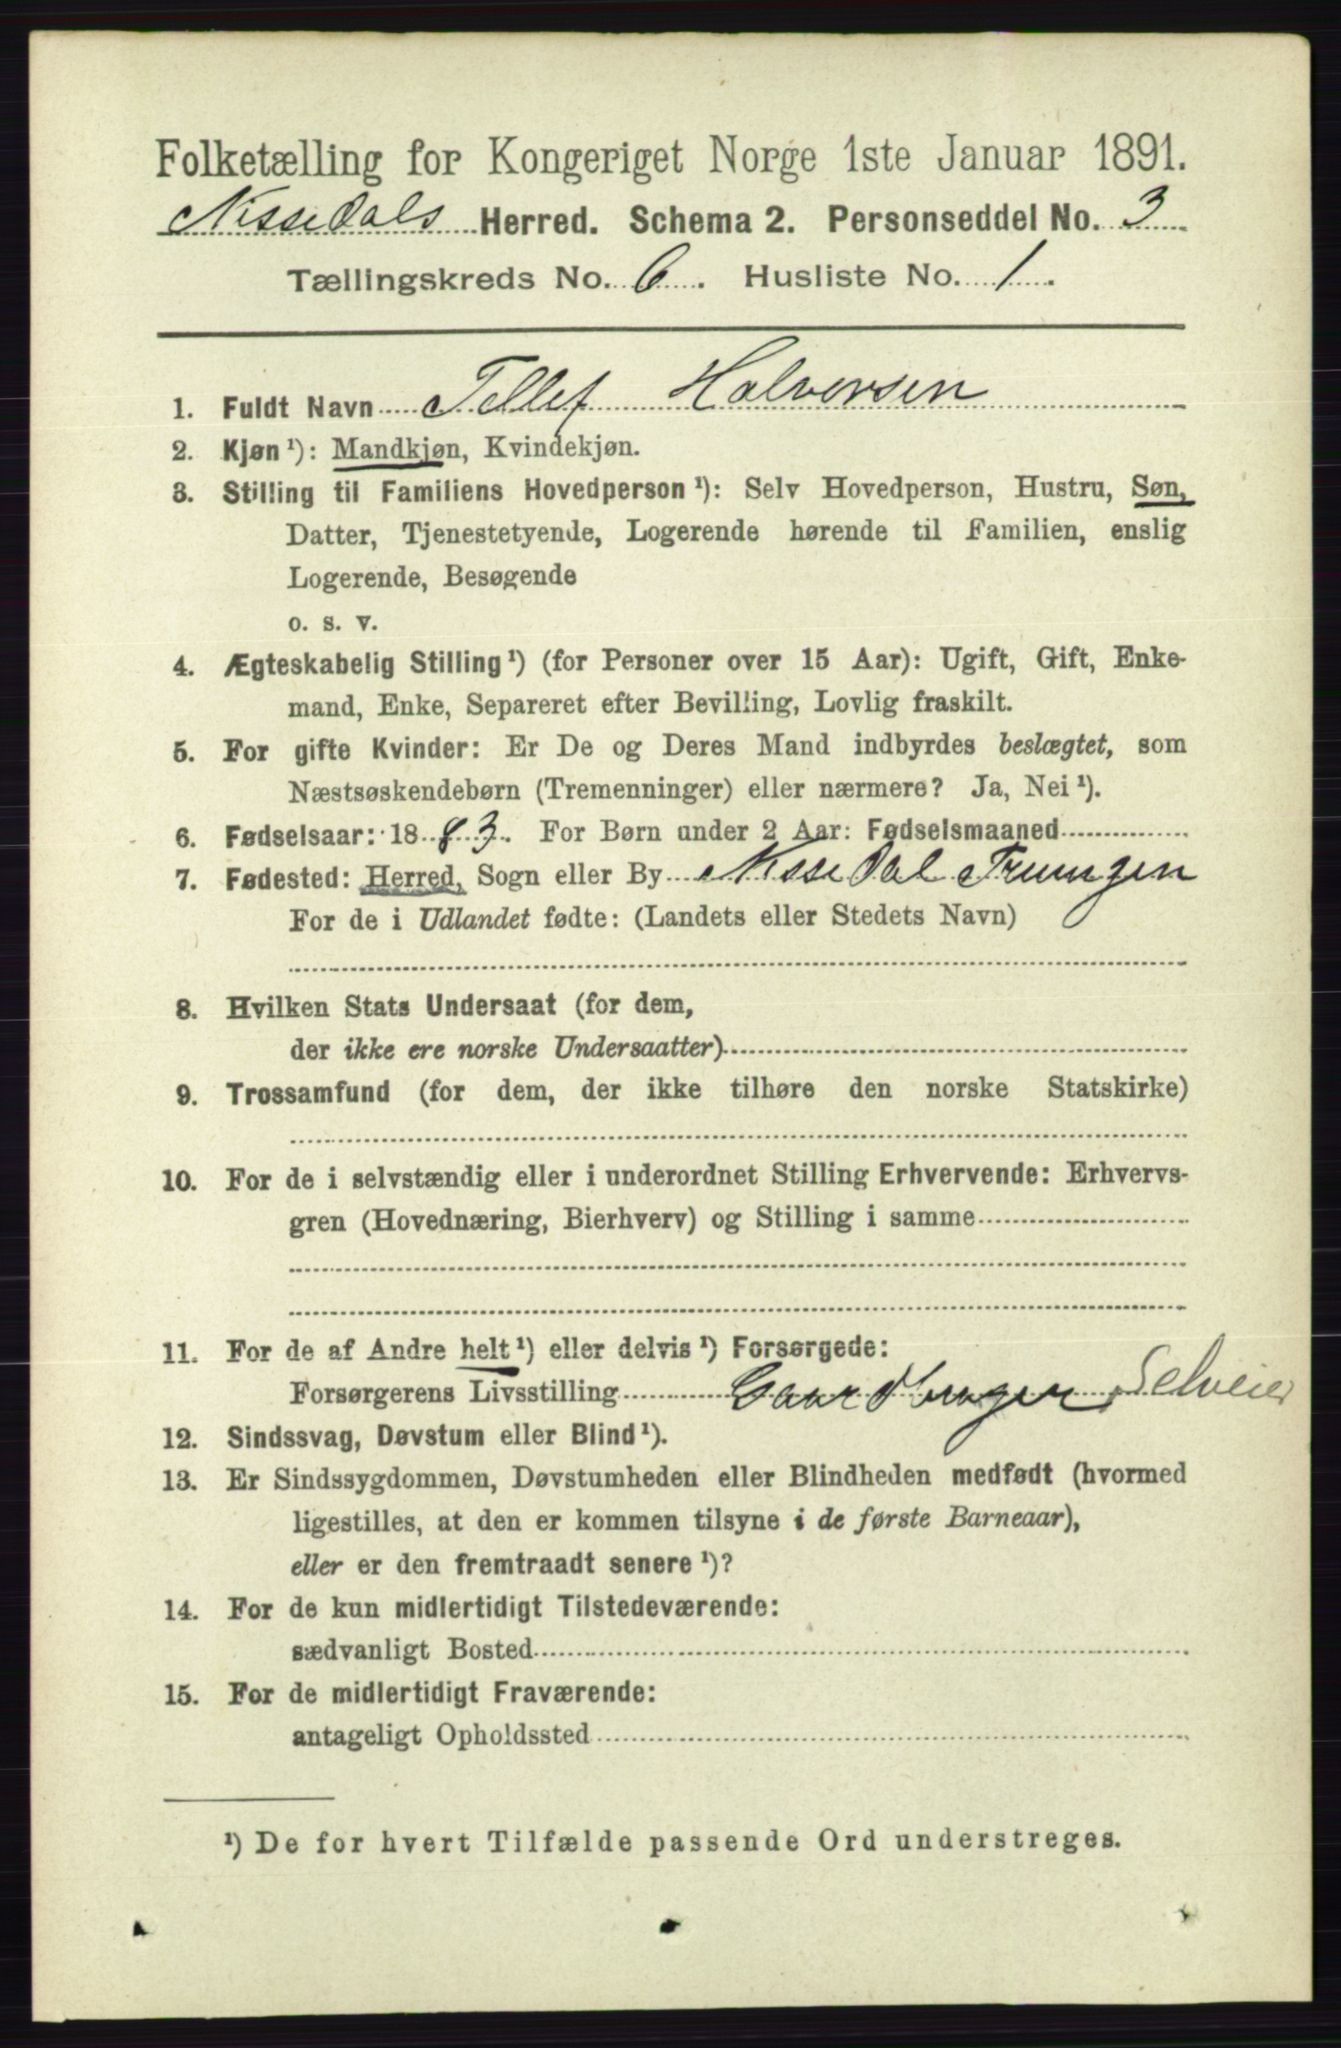 Folketælling for Kongeriget Norge 1ste Januar 1891.
Nissedals Herred. Schema 2. Personseddel No. 3
Tællingskreds No. 6. Husliste No. 1.
1. Fuldt Navn Tellef Halvorsen
2. Kjøn¹): Mandkjøn, Kvindekjøn.
3. Stilling til Familiens Hovedperson¹): Selv Hovedperson, Hustru, Søn,
Datter, Tjenestetyende, Logerende hørende til Familien, enslig
Logerende, Besøgende
o. s. v.
4. Ægteskabelig Stilling¹) (for Personer over 15 Aar): Ugift, Gift, Enke-
mand, Enke, Separeret efter Bevilling, Lovlig fraskilt.
5. For gifte Kvinder: Er De og Deres Mand indbyrdes beslægtet, som
Næstsøskendebørn (Tremenninger) eller nærmere? Ja, Nei¹).
6. Fødselsaar: 1883. For Børn under 2 Aar: Fødselsmaaned
7. Fødested: Herred, Sogn eller By Nissedal Trungen
For de i Udlandet fødte: (Landets eller Stedets Navn)
8. Hvilken Stats Undersaat (for dem,
der ikke ere norske Undersaatter)
9. Trossamfund (for dem, der ikke tilhøre den norske Statskirke)
10. For de i selvstændig eller i underordnet Stilling Erhvervende: Erhvervs-
gren (Hovednæring, Bierhverv) og Stilling i samme
11. For de af Andre helt¹) eller delvis¹) Forsørgede:
Forsørgerens Livsstilling Gaardbruger Selveier
12. Sindssvag, Døvstum eller Blind¹).
13. Er Sindssygdommen, Døvstumheden eller Blindheden medfødt (hvormed
ligestilles, at den er kommen tilsyne i de første Barneaar),
eller er den fremtraadt senere¹)?
14. For de kun midlertidigt Tilstedeværende:
sædvanligt Bosted
15. For de midlertidigt Fraværende:
antageligt Opholdssted
¹) De for hvert Tilfælde passende Ord understreges.